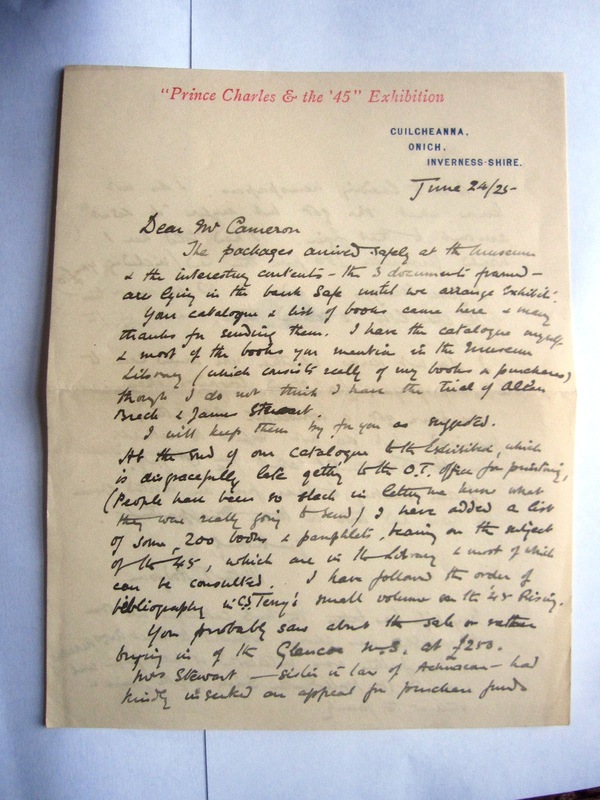 "Prince Charles & the '45" Exhibition
CUILCHEANNA,
ONICH,
INVERNESS-SHIRE.
June 24/25-
Dear Mr Cameron
The packages arrived safely at the Museum
& the interesting contents - the 3 documents framed -
are lying in the bank safe until we arrange Exhibits.
Your catalogue & list of books came here & many
thanks for sending them. I have the catalogue myself
& most of the books you mention in the Museum
Library (which consists really of my books & purchases)
though I do not think I have the trial of Allan
Breck & James Stewart.
I will keep them by for you as suggested.
At the end of our catalogue to the Exhibition, which
is disgracefully late getting to the O.T. office for printing,
(People have been so slack in letting me know what
they were really going to send) I have added a list
of some 200 books & pamphlets, bearing on the subject
of the 45, which are in the Library & most of which
can be consulted. I have followed the order of
bibliography in C.S. Terry's small volume on the '45 Rising.
You probably saw about the sale or rather
buying in of the Glencoe M.S. at £250.
Mrs Stewart - sister in law of Achnacon - had
kindly inserted an appeal for purchase funds